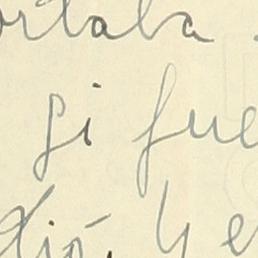 ortaba
si fue
dió. Y e